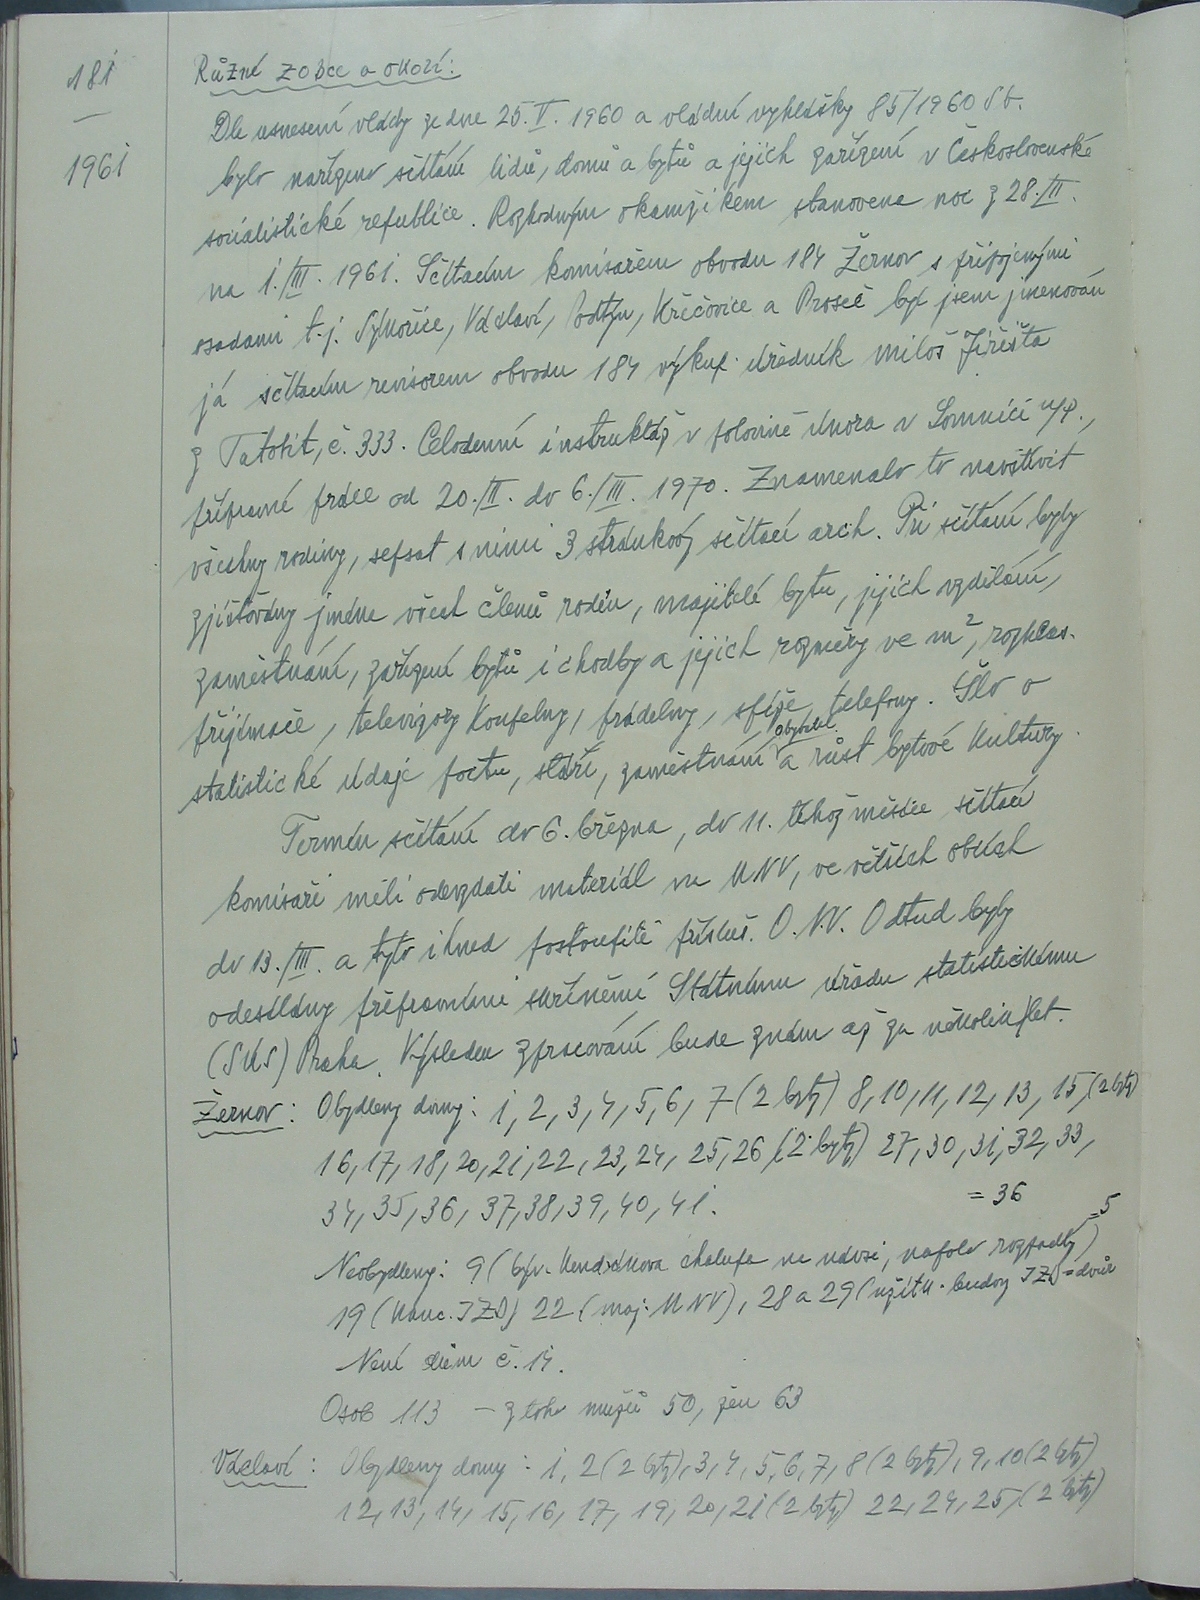 181
—
1961
Různé z obce a okolí:
Dle usnesení vlády ze dne 25. V. 1960 a vládní vyhlášky 85/1960 Sb.
bylo nařízeno sčítání lidu, domů a bytů a jejich zařízení v Československé
socialistické republice. Rozhodným okamžikem stanovena noc z 28. III.
na 1. III. 1961. Sčítacím komisařem obvodu 184 Žernov s připojenými
osadami t.j. Sýkořice, Václaví, Krčkovice a Proseč byl jsem jmenován
já sčítacím revisorem obvodu 184 výkup. úředník Miloš Jirišta
z Tatobit, č. 333. Celodenní instruktáž v polovině února v Lomnici n/p.,
přípravné práce od 20. II. do 6. III. 1970. Znamenalo to navštívit
všechny rodiny, sepsat s nimi 3 stránkový sčítací arch. Při sčítání byly
zjišťovány jména všech členů rodin, majitelé bytu, jejich vzdělání,
zaměstnání, zařízení bytů i chodby a jejich rozměry ve m², rozhlas.
přijimače, televizory koupelny, prádelny, spíže, telefony. Šlo o
statistické údaje počtu, stáří, zaměstnání obyvatel a růst bytové kultury.
Termín sčítání do 6. března, do 11. téhož měsíce sčítací
komisaři měli odevzdati materiál na MNV, ve větších obcích
do 13. III. a tyto ihned postoupiti přísluš. O.N.V. Odtud byly
odesílány přepravními skříněmi Státnímu úřadu statistickému
(SÚS) Praha. Výsledek zpracování bude znám až za několik let.
Žernov: Obydleny domy: 1, 2, 3, 4, 5, 6, 7 (2 byty) 8, 10, 11, 12, 13, 15, (2 byty)
16, 17, 18, 20, 21, 22, 23, 24, 25, 26 (2 byty) 27, 30, 31, 32, 33,
34, 35, 36, 37, 38, 39, 40, 41. = 36
Neobydleny: 9 (býv. chalupa na návsi, napolo rozpadlý) = 5
19 (kanc. JZD) 22 (maj. MNV), 28 a 29 (užitk. budov JZD = dvůr
Není dům č. 14.
Osob 113 — z toho mužů 50, žen 63
Václaví: Obydleny domy: 1, 2 (2 byty), 3, 4, 5, 6, 7, 8 (2 byty), 9, 10 (2 byty)
12, 13, 14, 15, 16, 17, 19, 20, 21 (2 byty) 22, 24, 25, (2 byty)